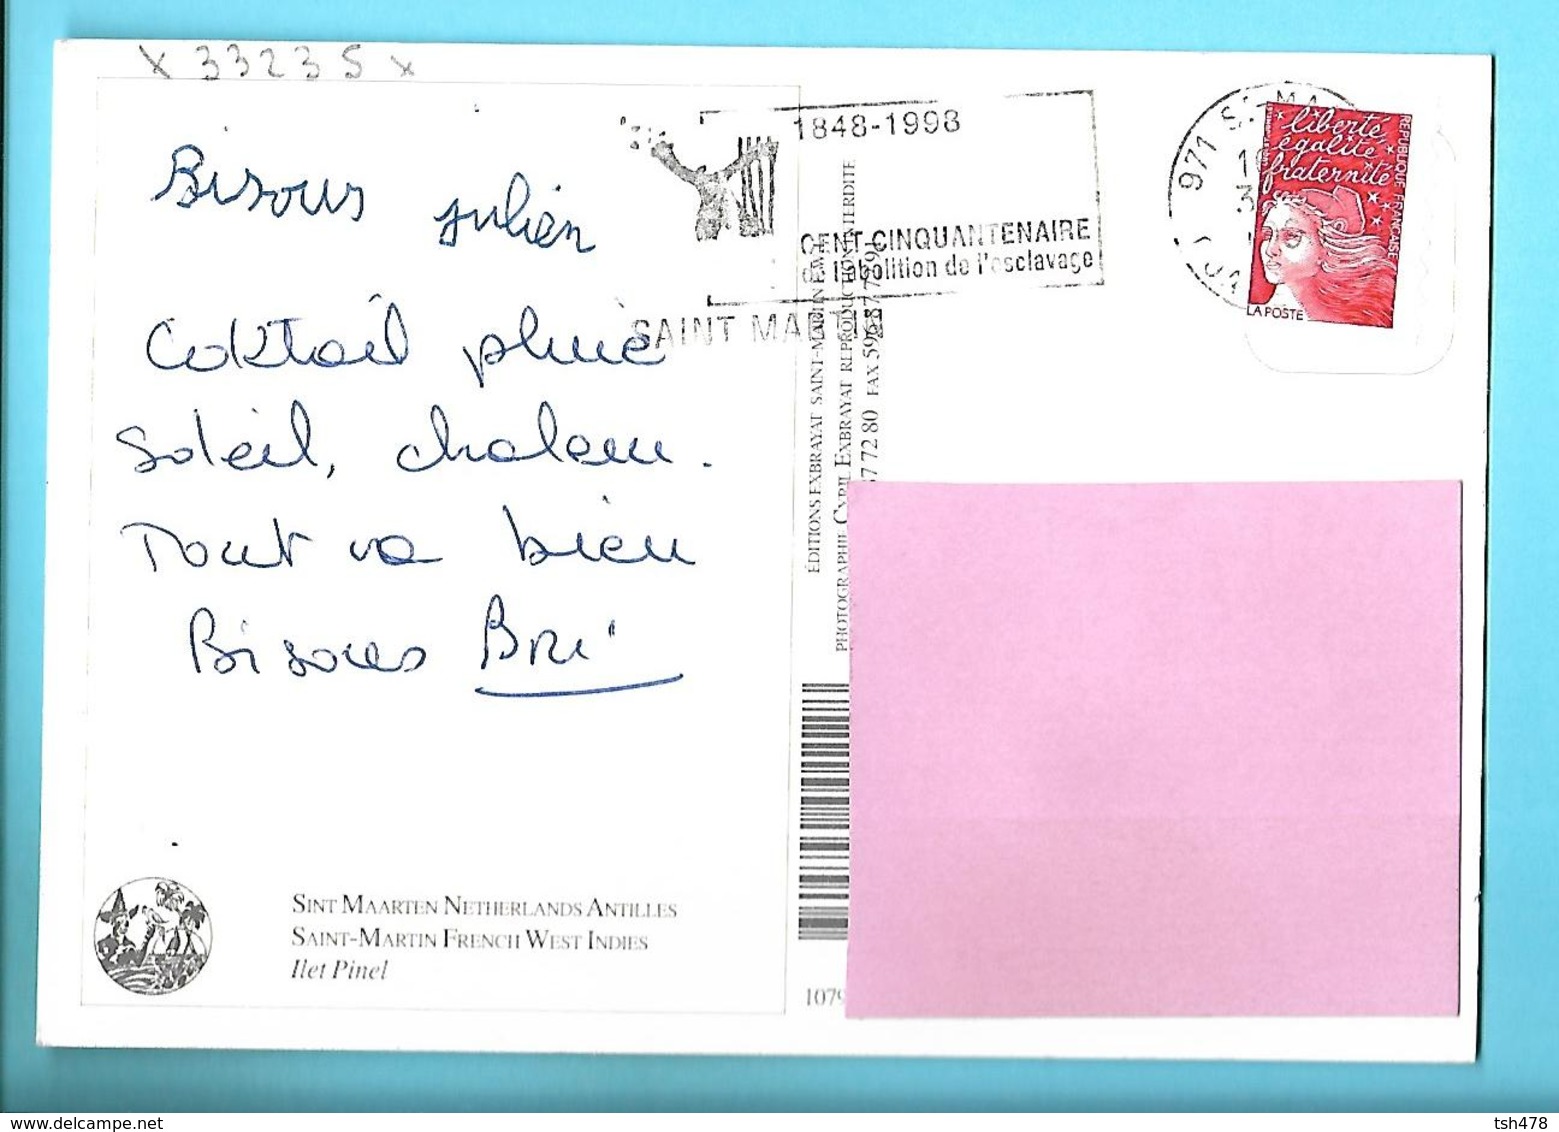 x 33235 x
Bisous julien
Coktail pluie
soleil, chaleur.
Tout va bien
Bisous Bri
SINT MAARTEN NETHERLANDS ANTILLES
SAINT-MARTIN FRENCH WEST INDIES
Ilet Pinel
1848-1998
CENT-CINQUANTENAIRE
de l'abolition de l'esclavage
SAINT MARTIN
ÉDITIONS EXBRAYAT SAINT-MARTIN F.W.I.
PHOTOGRAPHIE CYRIL EXBRAYAT REPRODUCTION INTERDITE
87 72 80 FAX 596 87 75 91
1079
971 ST-MA
liberté,
égalité
fraternité
RÉPUBLIQUE FRANÇAISE
LA POSTE
delcampe.net
tsh478